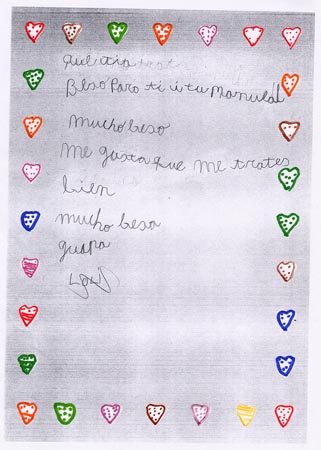 Beso Para ti y tu Manuel
mucho beso
me gusta que me trates
bien
mucho beso
guapa